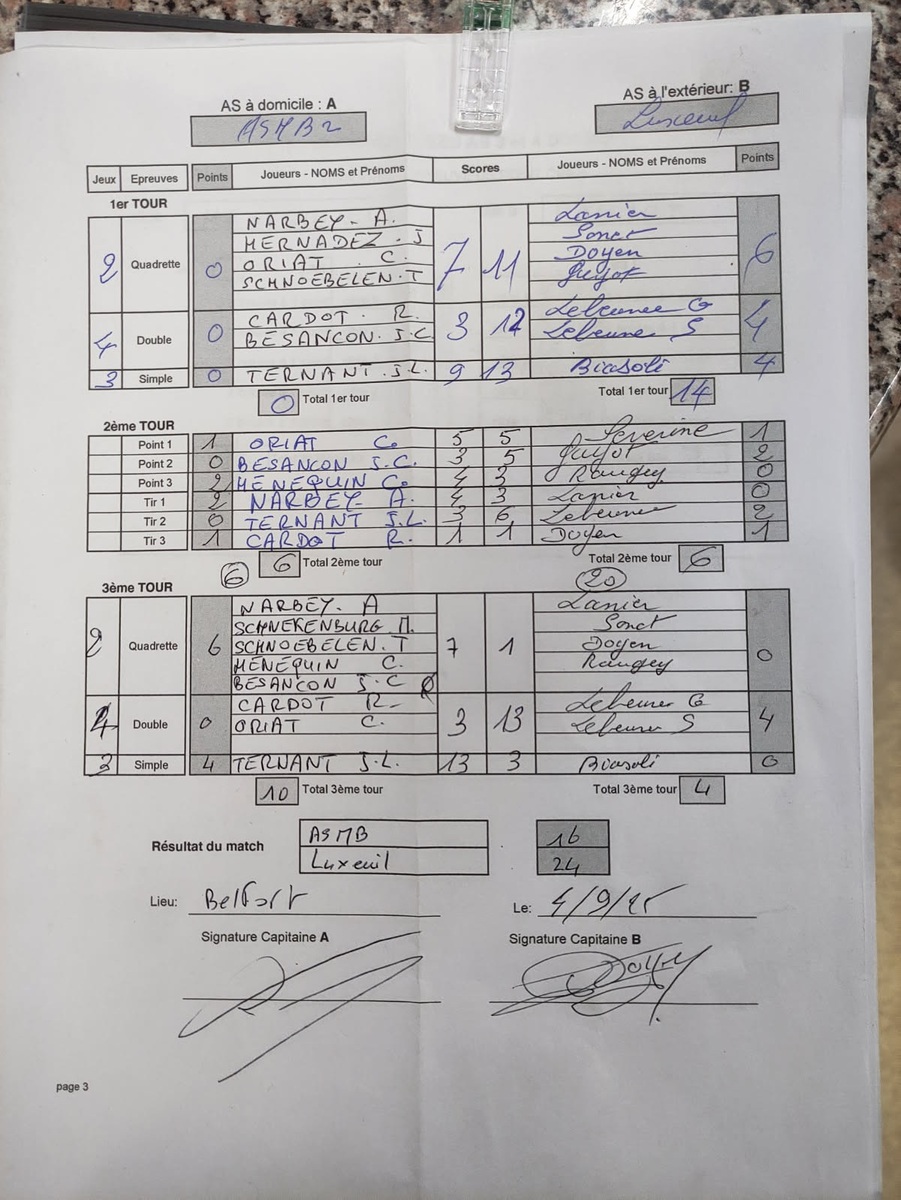 AS à domicile : A AS à l'extérieur: B
ASMB2 Luxeuil
Jeux Epreuves Points Joueurs - NOMS et Prénoms Scores Joueurs - NOMS et Prénoms Points
1er TOUR
NARBEY - A. Lanier
HERNADEZ . J Sonet
2 Quadrette 0 ORIAT . C. 7 11 Doyen 6
SCHNOEBELEN . T Guyot
CARDOT . R. Lebeunee G
4 Double 0 BESANCON . J.C. 3 12 Lebeune S 4
3 Simple 0 TERNANT . J.L. 9 13 Biasoli 4
0 Total 1er tour Total 1er tour 14
2ème TOUR
Point 1 1 ORIAT C. 5 5 Severine 1
Point 2 0 BESANCON J.C. 3 5 Guyot 2
Point 3 2 MENEQUIN C. 4 3 Raugey 0
Tir 1 2 NARBEY A. 4 3 Lanier 0
Tir 2 0 TERNANT J.L. 3 6 Lebeunee 2
Tir 3 1 CARDOT R. 1 1 Doyen 1
6 6 Total 2ème tour Total 2ème tour 6
3ème TOUR 20
NARBEY - A Lanier
SCHNEKENBURG M. Sonet
2 Quadrette 6 SCHNOEBELEN . T 7 1 Doyen 0
MENEQUIN C. Raugey
BESANCON J.C
CARDOT R. Lebeuner G
4 Double 0 ORIAT C. 3 13 Lebeuner S 4
3 Simple 4 TERNANT J.L. 13 3 Biasoli 0
10 Total 3ème tour Total 3ème tour 4
Résultat du match ASMB 16
Luxeuil 24
Lieu: Belfort Le: 4/9/25
Signature Capitaine A Signature Capitaine B
page 3